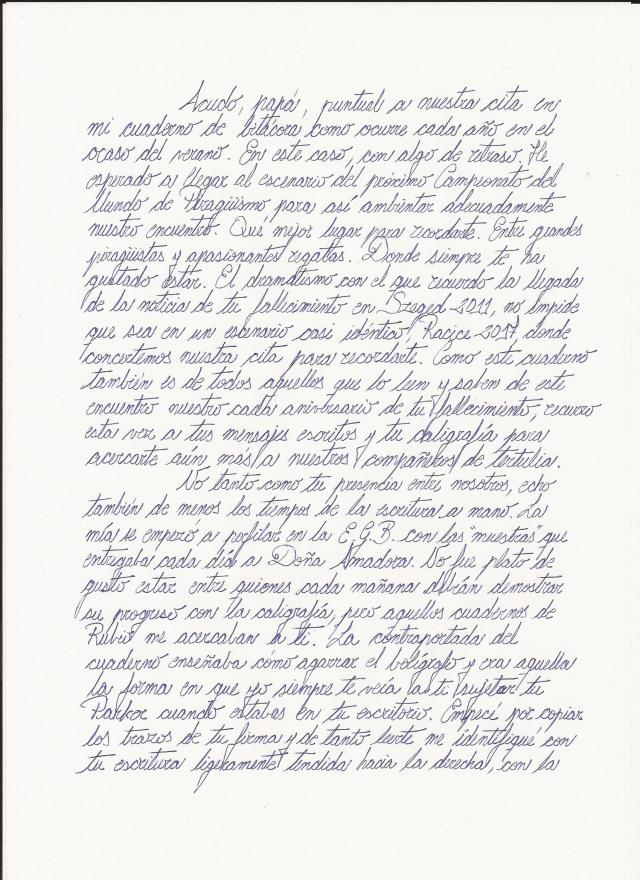 Acudo, papá, puntual a nuestra cita en
mi cuaderno de bitácora como ocurre cada año en el
ocaso del verano. En este caso, con algo de retraso. He
esperado a llegar al escenario del próximo Campeonato del
Mundo de Piragüismo para así ambientar adecuadamente
nuestro encuentro. Que mejor lugar para recordarte. Entre grandes
piragüistas y apasionantes regatas. Donde siempre te ha
gustado estar. El dramatismo con el que recuerdo la llegada
de la noticia de tu fallecimiento en Szeged-2011, no impide
que sea en un escenario casi idéntico, Racice-2017, donde
concertemos nuestra cita para recordarte. Como este cuaderno
también es de todos aquellos que lo leen y saben de este
encuentro nuestro cada aniversario de tu fallecimiento, recurro
esta vez a tus mensajes escritos y tu caligrafía para
acercarte aún más a nuestros compañeros de tertulia.
No tanto como tu presencia entre nosotros, echo
también de menos los tiempos de la escritura a mano. La
mía se empezó a perfilar en la E.G.B. con las "muestras" que
entregaba cada día a Doña Amadora. No fue plato de
gusto estar entre quienes cada mañana debían demostrar
su progreso con la caligrafía, pero aquellos cuadernos de
Rubio me acercaban a ti. La contraportada del
cuaderno enseñaba cómo agarrar el bolígrafo y era aquella
la forma en que yo siempre te veía a ti sujetar tu
Parker cuando estabas en tu escritorio. Empecé por copiar
los trazos de tu firma y de tanto leerte me identifiqué con
tu escritura ligeramente tendida hacia la derecha, con la